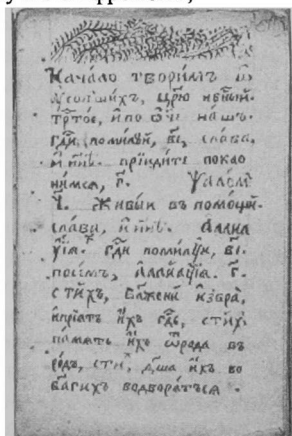 Начало творимъ ѿ
ꙋсопшихъ, цр҃ю нб҃ный.
трⷭ҇тое, и по ѿч҃е нашъ.
гдⷭ҇и помилꙋй, в҃і, слава,
и нн҃ѣ. прїидите покло
нимся, г҃. Ѱалом
ч҃. Живыи въ помощи.
слава, и нн҃ѣ. Аллил
ꙋїа. г҃. гдⷭ҇и помилꙋй, в҃і.
поимъ, Аллилꙋїа. г҃.
стихъ, Бл҃жени избра,
ипрїатъ ихъ гдⷭ҇ь, стих.
память ихъ ѿрода въ
родъ, сти, дш҃а ихъ во
бл҃гихъ водворатъся.